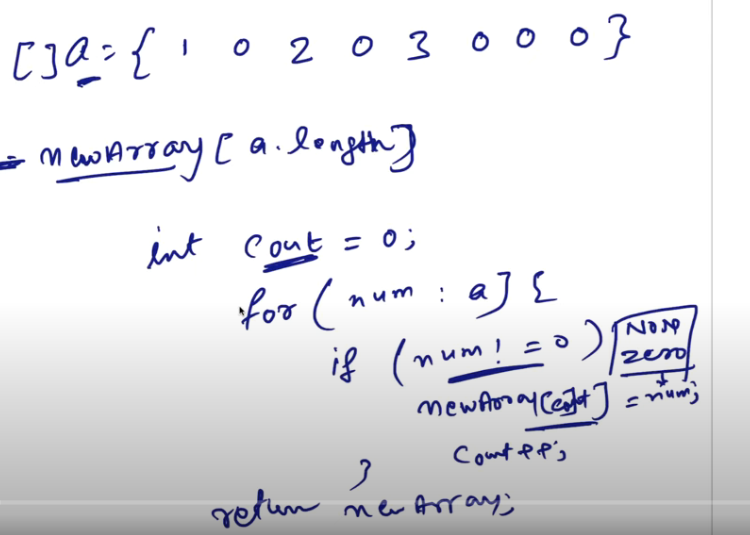 []a={ 1 0 2 0 3 0 0 0 }
= newArray[ a.length]
int cout = 0;
for ( num : a] {
if ( num! = 0 ) Non zero
newArray[cont] = num;
Count++;
}
return newArray;